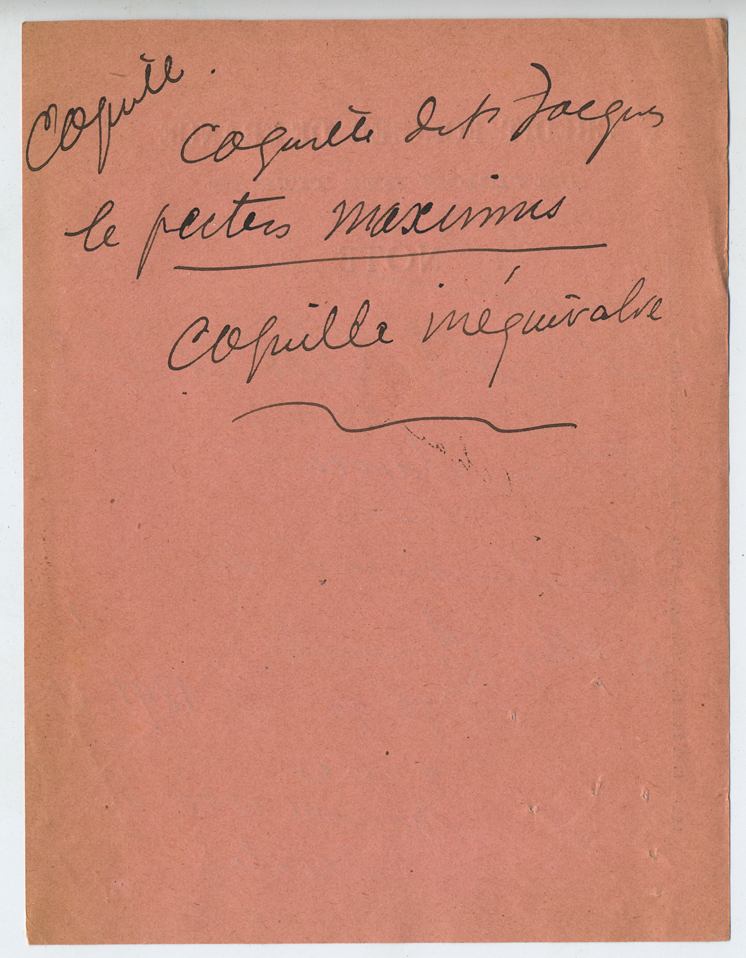 Coquille.
coquille de St Jacques
le pecten maximus
coquille inéquivalve